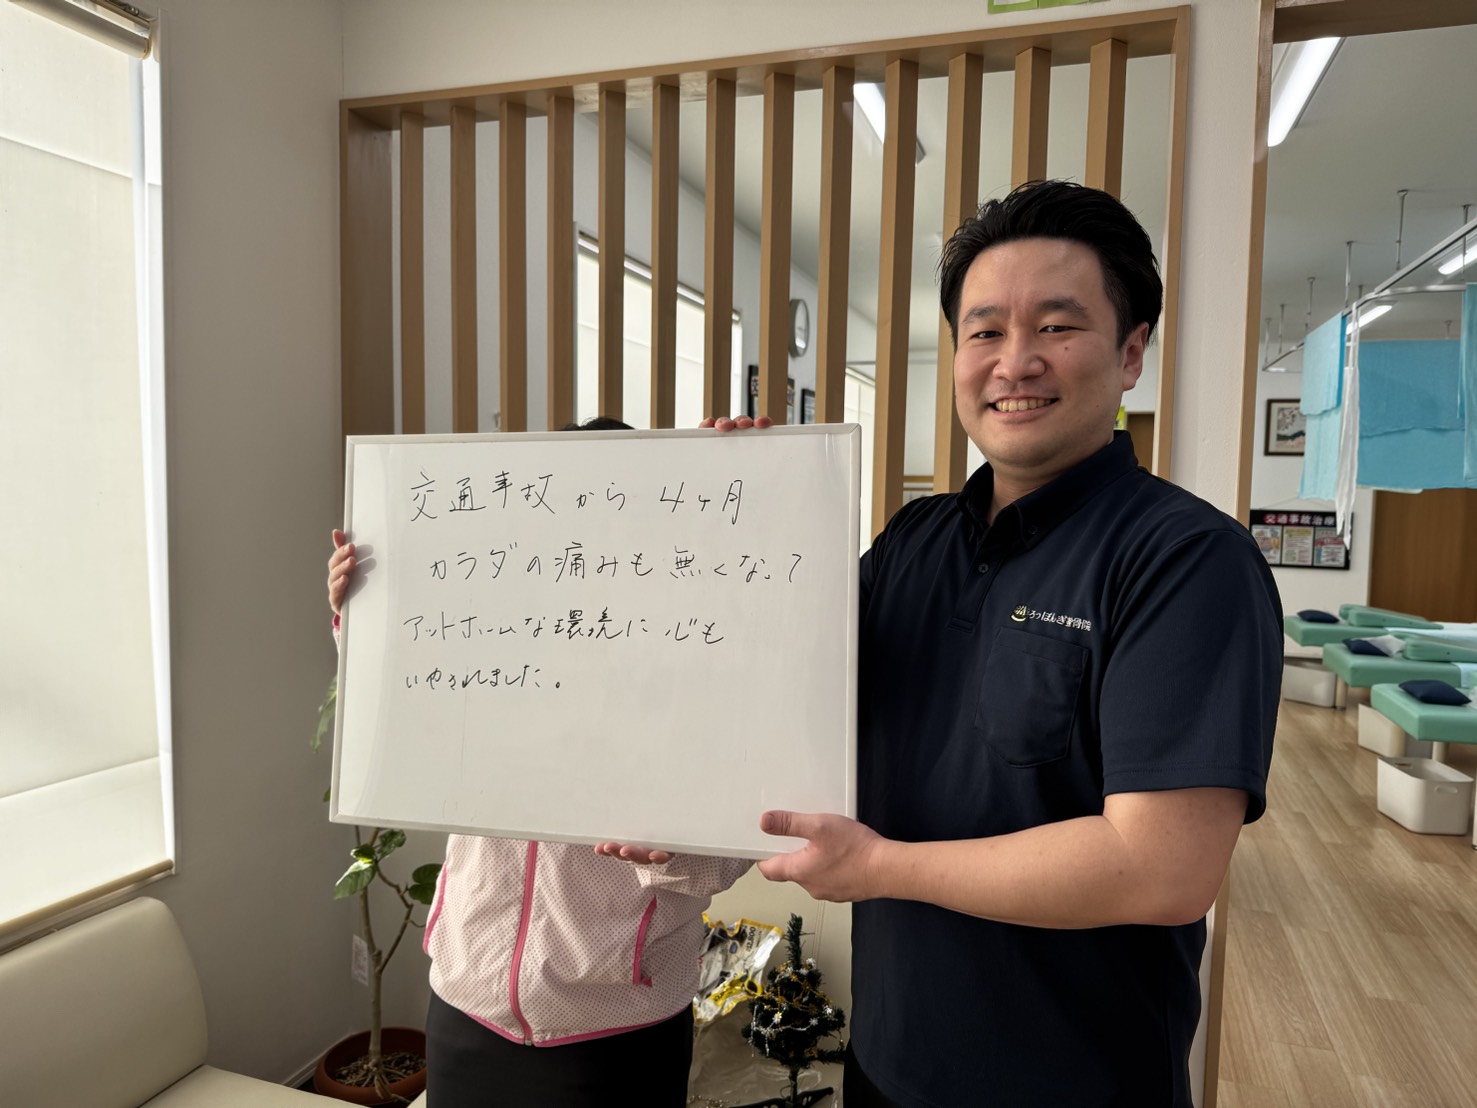 交通事故から 4ヶ月
カラダの痛みも無くなって
アットホームな環境に心も
いやされました。
ろっぽんぎ整骨院
交通事故治療